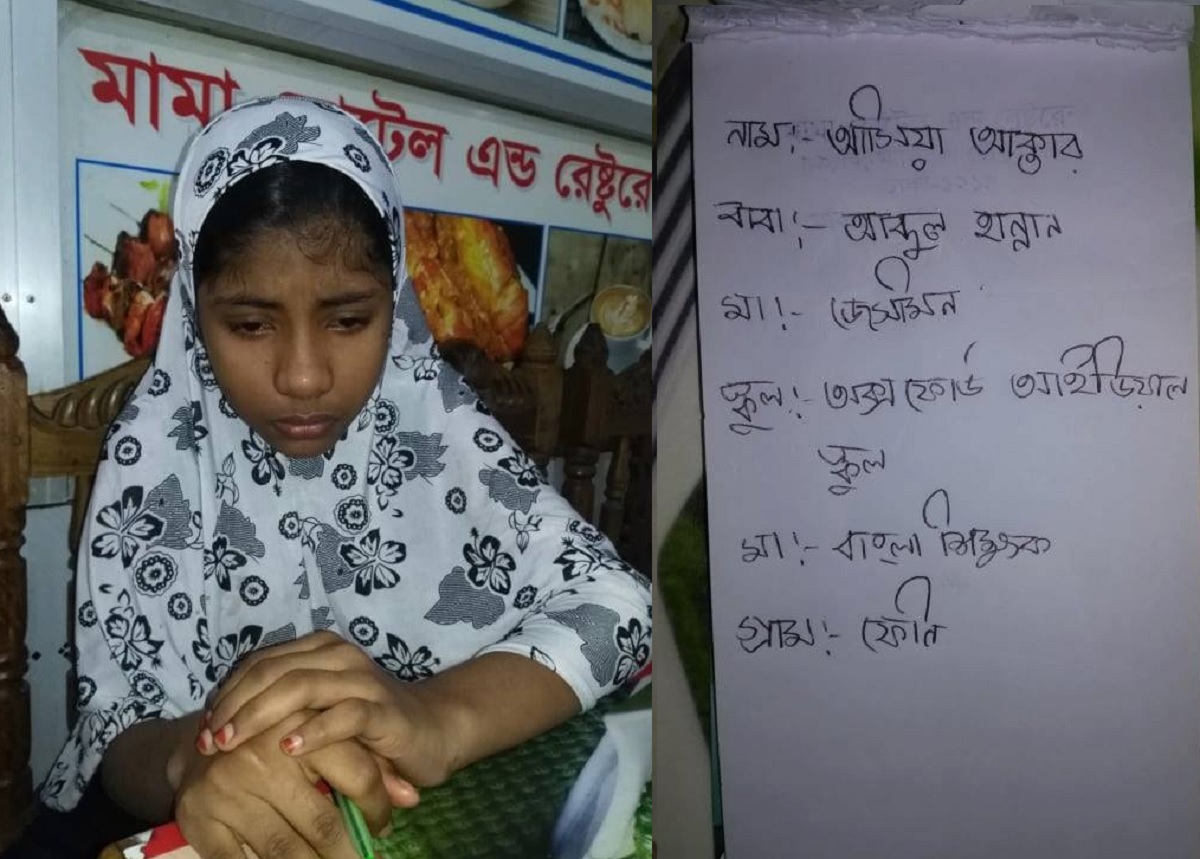 মামা টেল এন্ড রেষ্টুরে
নাম:- আক্তার
বাবা:- আব্দুল হান্নান
মা:- জেসমিন
স্কুল:- অক্সফোর্ড আইডিয়াল
স্কুল
মা:- বাংলা শিক্ষক
গ্রাম:-